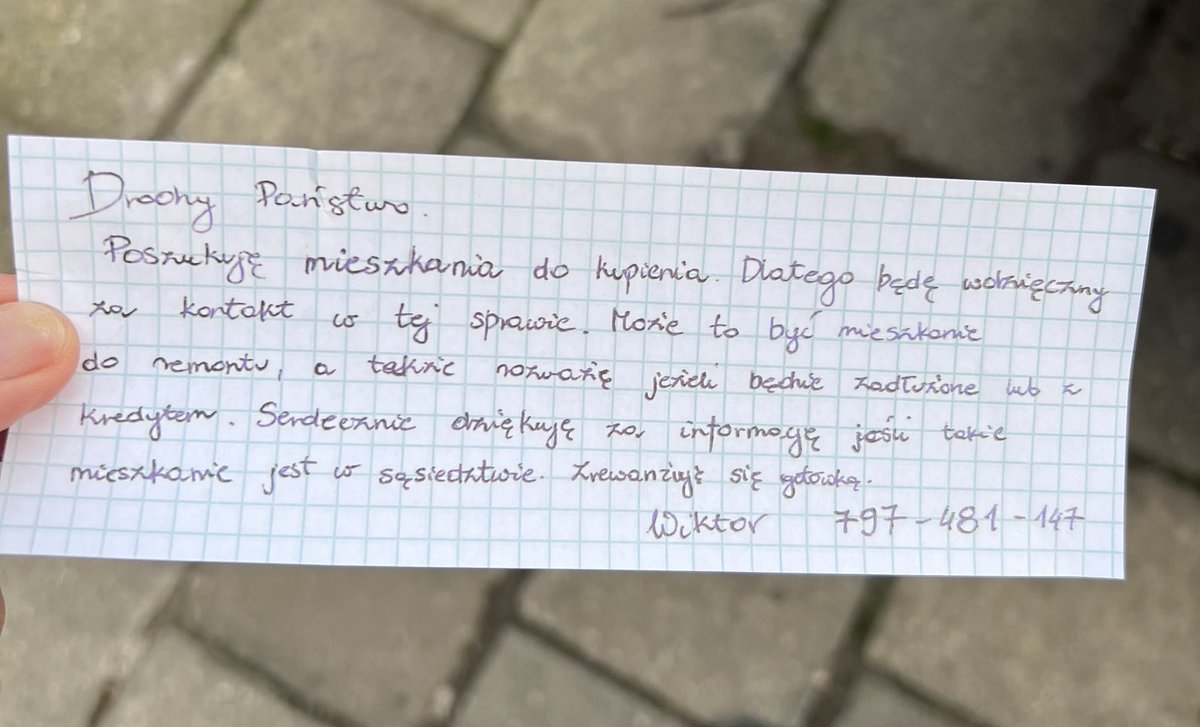 Drodzy Państwo.
Poszukuję mieszkania do kupienia. Dlatego będę wdzięczny
za kontakt w tej sprawie. Może to być mieszkanie
do remontu, a także rozważę jeżeli będzie zadłużone lub z
kredytem. Serdecznie dziękuję za informację jeśli takie
mieszkanie jest w sąsiedztwie. Zrewanżuję się gotówką.
Wiktor 797-481-147